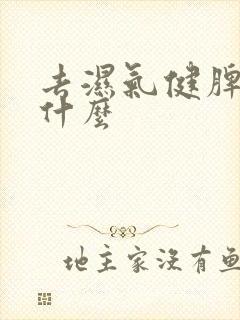 去濕氣健脾
什麼
地主家沒有魚